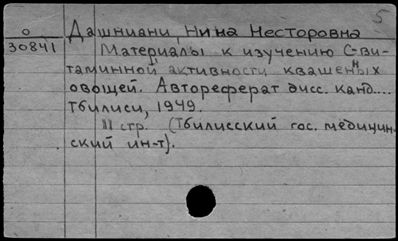 5
О Дашниани, Нина Несторовна
30841 Материалы к изучению С-ви-
таминной активности квашенных
овощей. Автореферат дисс. канд....
Тбилиси, 1949.
11 стр. (Тбилисский гос. медицин-
ский ин-т).